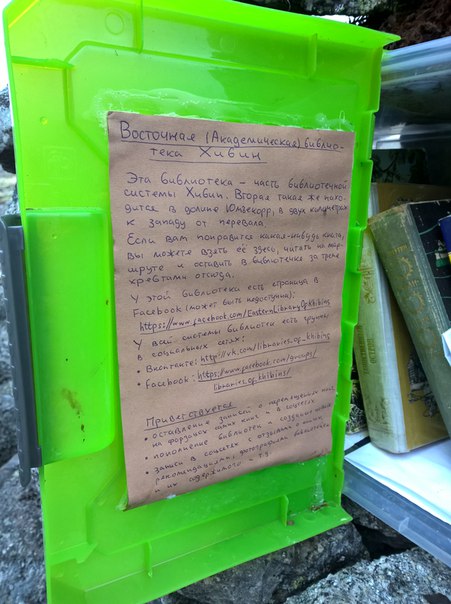 Восточная (Академическая) библио-
тека Хибин
Эта библиотека – часть библиотечной
системы Хибин. Вторая такая же нахо-
дится в долине Юмъекорр, в двух километрах
к западу от перевала.
Если вам понравится какая-нибудь книга,
вы можете взять её здесь, читать на мар-
шруте и оставить в библиотеке за тремя
хребтами отсюда.
У этой библиотеки есть страница в
Facebook (может быть недоступна):
https://www.facebook.com/EasternLibraryOfKhibins
У всей системы библиотек есть группы
в социальных сетях:
• Вконтакте: http://vk.com/libraries_of_khibins
• Facebook: https://www.facebook/groups/
libraries_of_khibins/
Приветствуется
• оставление записей о перемещении книг
на форзацах самих книг и в соцсетях
• пополнение библиотек и создание новых
• записи в соцсетях с отзывами о книгах,
рекомендациями, фотографиями библиотеки
и их содержимого и т.д.